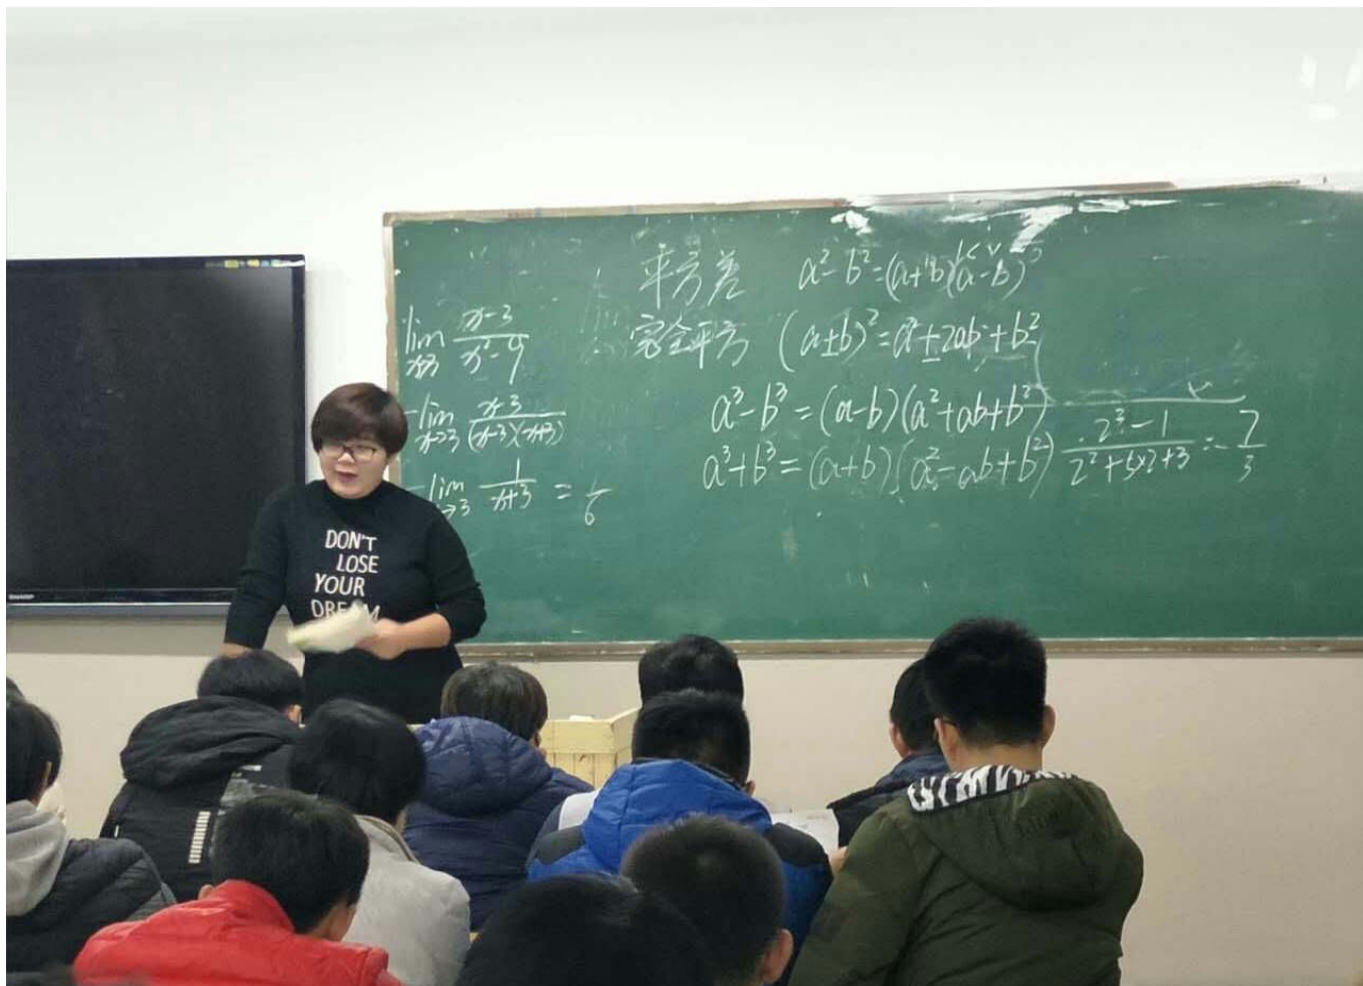 平方差 a²-b²=(a+b)(a-b)
完全平方 (a±b)²=a²±2ab+b²
a³-b³=(a-b)(a²+ab+b²)
a³+b³=(a+b)(a²-ab+b²)
lim x→3 x-3/x²-9
lim x→3 x-3/(x-3)(x+3)
lim x→3 1/x+3 = 1/6
DON'T
LOSE
YOUR
DREAM
SHARP